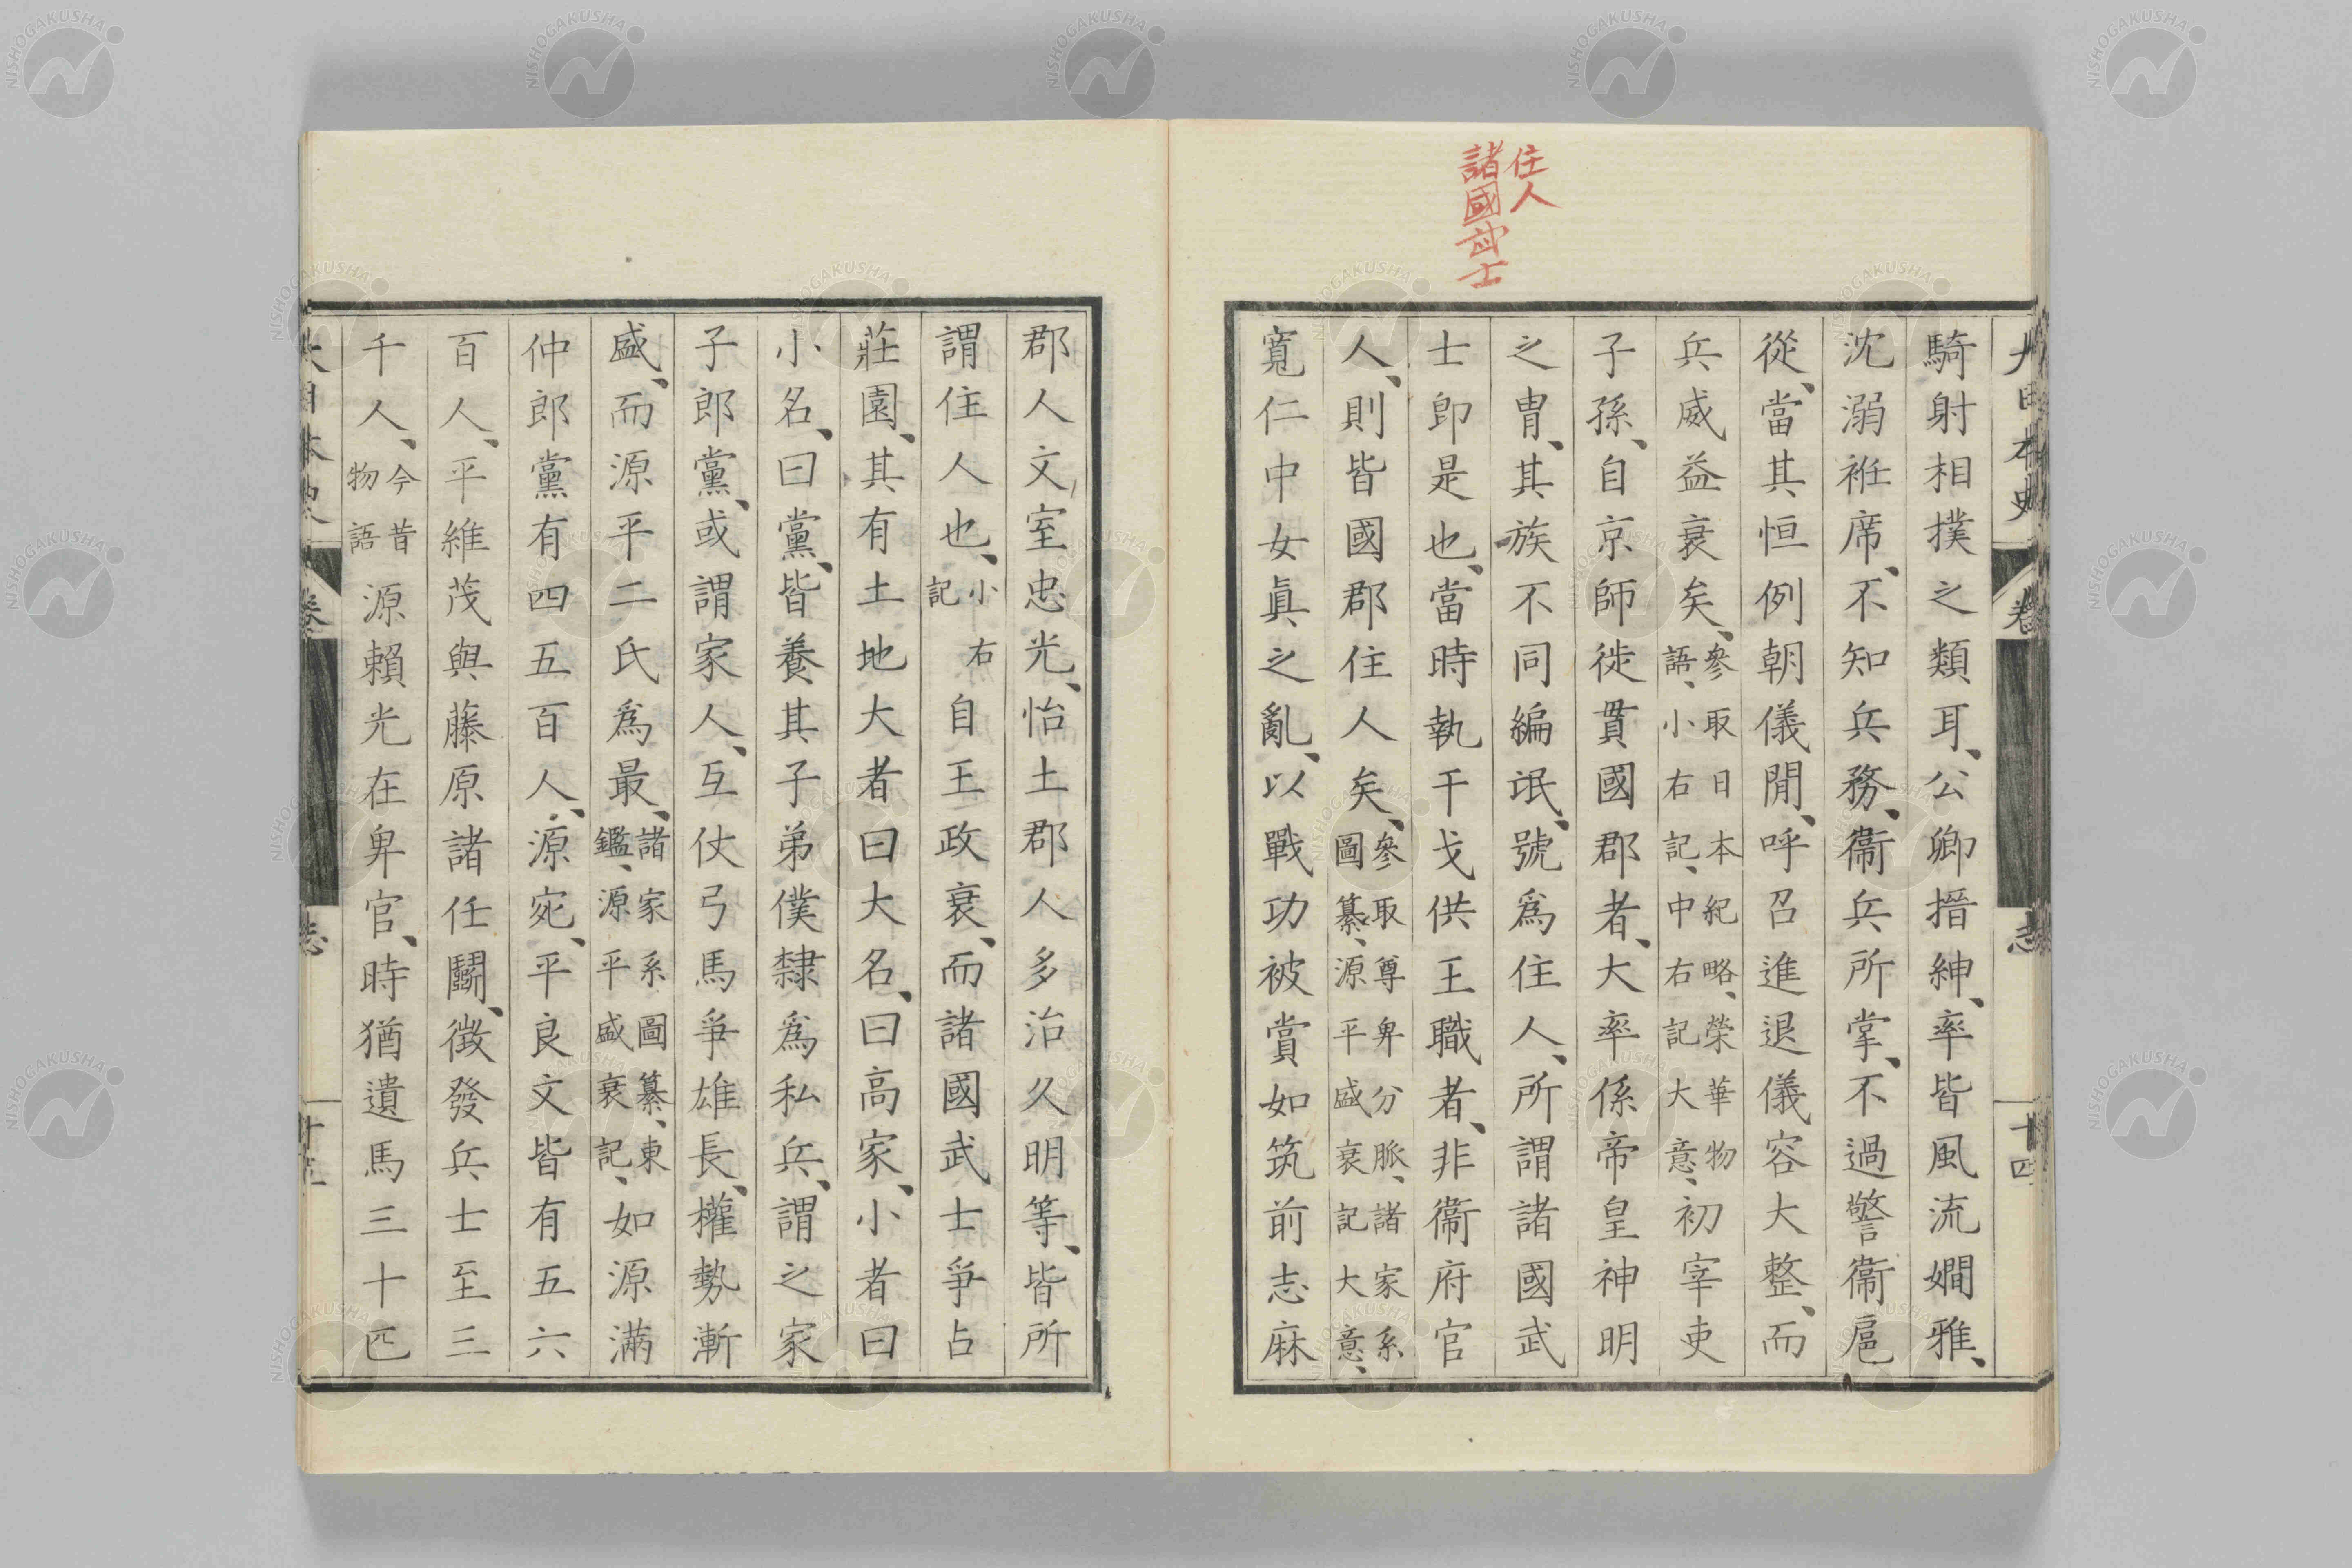 住人
諸國武士
大日本史 卷 志 十四
騎射相撲之類耳、公卿搢紳、率皆風流嫺雅、
沈溺袵席、不知兵務、衞兵所掌、不過警衞扈
從、當其恒例朝儀閒、呼召進退儀容大整、而
兵威益衰矣、參取日本紀略、榮華物語、小右記、中右記大意、初宰吏
子孫、自京師徙貫國郡者、大率係帝皇神明
之胄、其族不同編氓、號爲住人、所謂諸國武
士卽是也、當時執干戈供王職者、非衞府官
人、則皆國郡住人矣、參取尊卑分脈、諸家系圖纂、源平盛衰記大意、
寬仁中女眞之亂、以戰功被賞如筑前志麻
郡人文室忠光、怡土郡人多治久明等、皆所
謂住人也、小右記 自王政衰、而諸國武士爭占
莊園、其有土地大者曰大名、曰高家、小者曰
小名、曰黨、皆養其子弟僕隸爲私兵、謂之家
子郎黨、或謂家人、互仗弓馬爭雄長、權勢漸
盛、而源平二氏爲最、諸家系圖纂、東鑑、源平盛衰記、如源滿
仲郎黨有四五百人、源宛、平良文皆有五六
百人、平維茂與藤原諸任鬭、徵發兵士至三
千人、今昔物語 源賴光在卑官、時猶遺馬三十匹
大日本史 卷 志 十五
NISHOGAKUSHA